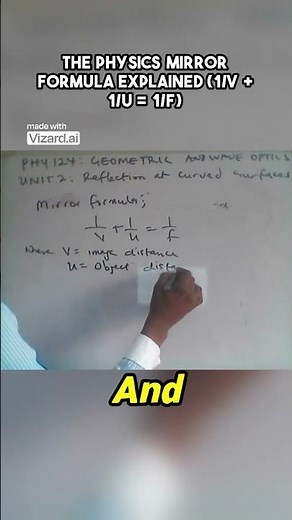 THE PHYSICS MIRROR
FORMULA EXPLAINED (1/V +
1/U = 1/F)
made with
Vizard.ai
PHY 124: GEOMETRIC AND WAVE OPTICS
UNIT 2: Reflection at curved surfaces
Mirror formula;
1/v + 1/u = 1/f
where V = image distance
u = Object dista
And